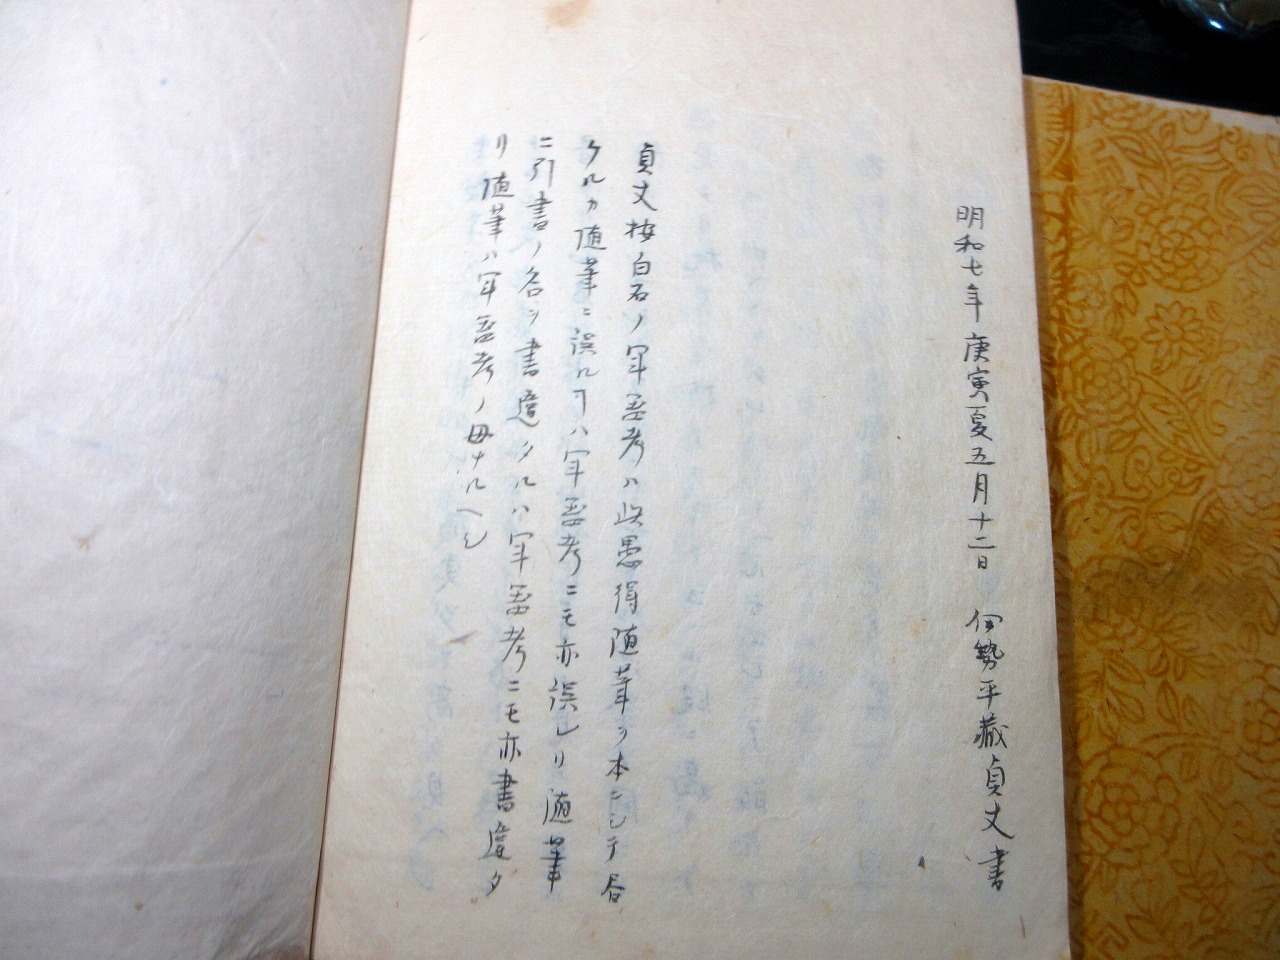 明和七年庚寅夏五月十二日 伊勢平藏貞丈書
貞丈按白石ノ軍器考ハ此愚得随筆ヲ本ニシテ
ケルカ随筆ニ誤ルヿハ軍器考ニモ亦誤レリ随筆
ニ引書ノ名ヲ書違タルハ軍器考ニモ亦書違タ
リ随筆ハ軍器考ノ母ナルヘシ